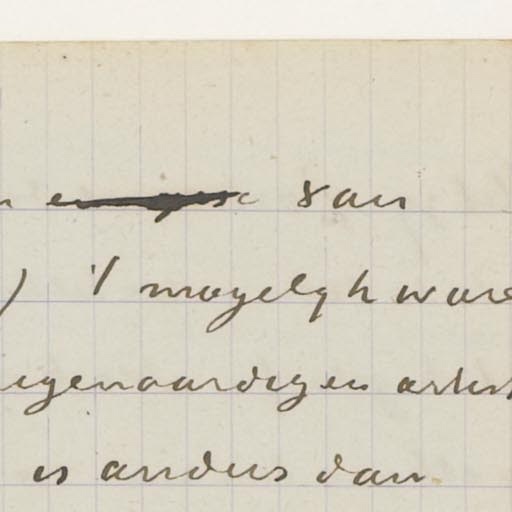 van
't mogelijk ware
egenaardigen artist
is anders dan